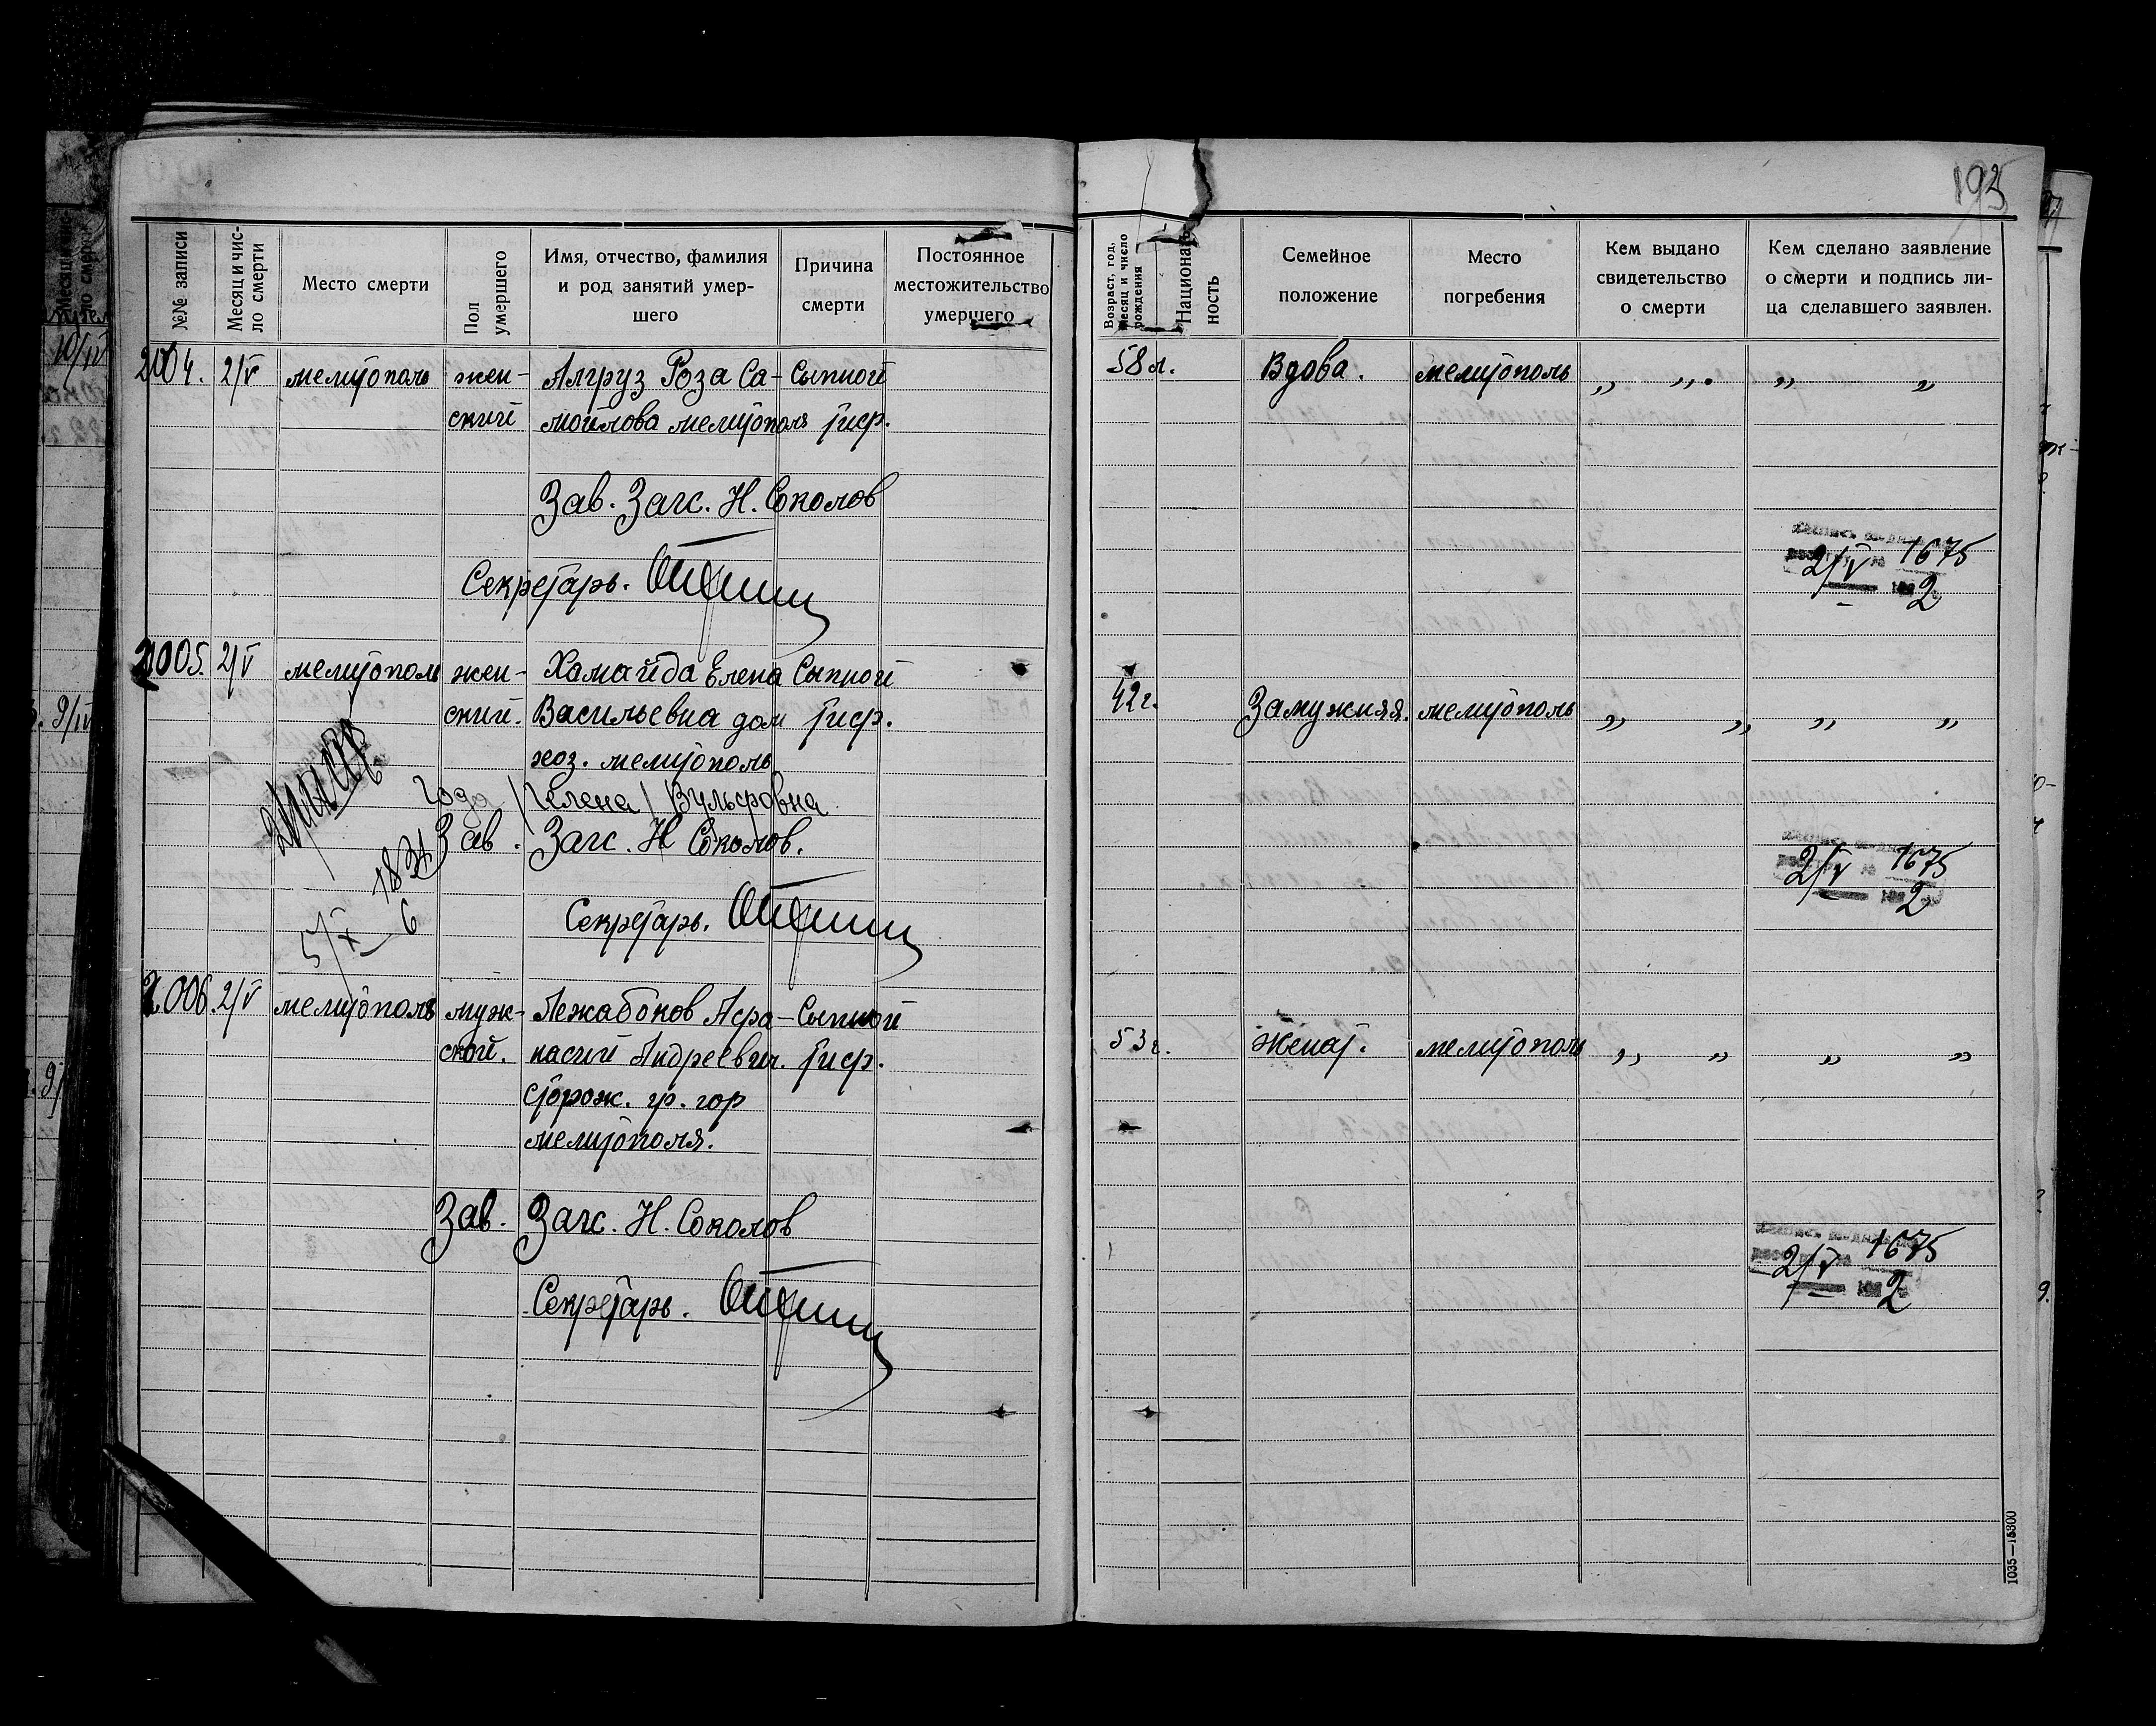 195
№№ записи
Месяц и чис-
ло смерти
Место смерти
Пол
умершего
Имя, отчество, фамилия
и род занятий умер-
шего
Причина
смерти
Постоянное
местожительство
умершего
Возраст, год,
месяц и число
рождения
Националь-
ность
Семейное
положение
Место
погребения
Кем выдано
свидетельство
о смерти
Кем сделано заявление
о смерти и подпись ли-
ца сделавшего заявлен.
2004. 2/V мелитополь жен- Алгруз Роза Са- Сыпной 58 л. Вдова. мелитополь „ „ „ „
ский мойлова мелитополя тиф.
Зав. Загс. Н. Соколов
Секретарь.
2/V 1675
2
2005. 2/V мелитополь жен- Хамайда Елена Сыпной 42 г. Замужняя. мелитополь „ „ „ „
ский. Васильевна дом тиф.
хоз. мелитополь
года /Гелена/ Вульфовна
Зав. Загс. Н Соколов.
Секретарь.
5/X 6
2/V 1675
2
2006. 2/V мелитополь муж- Лежабоков Афа- Сыпной 53 г. Женат. мелитополь „ „ „ „
ской. насий Андреевич. тиф.
сторож. гр. гор
мелитополя.
Зав. Загс. Н. Соколов
Секретарь.
2/V 1675
2
1035—15300